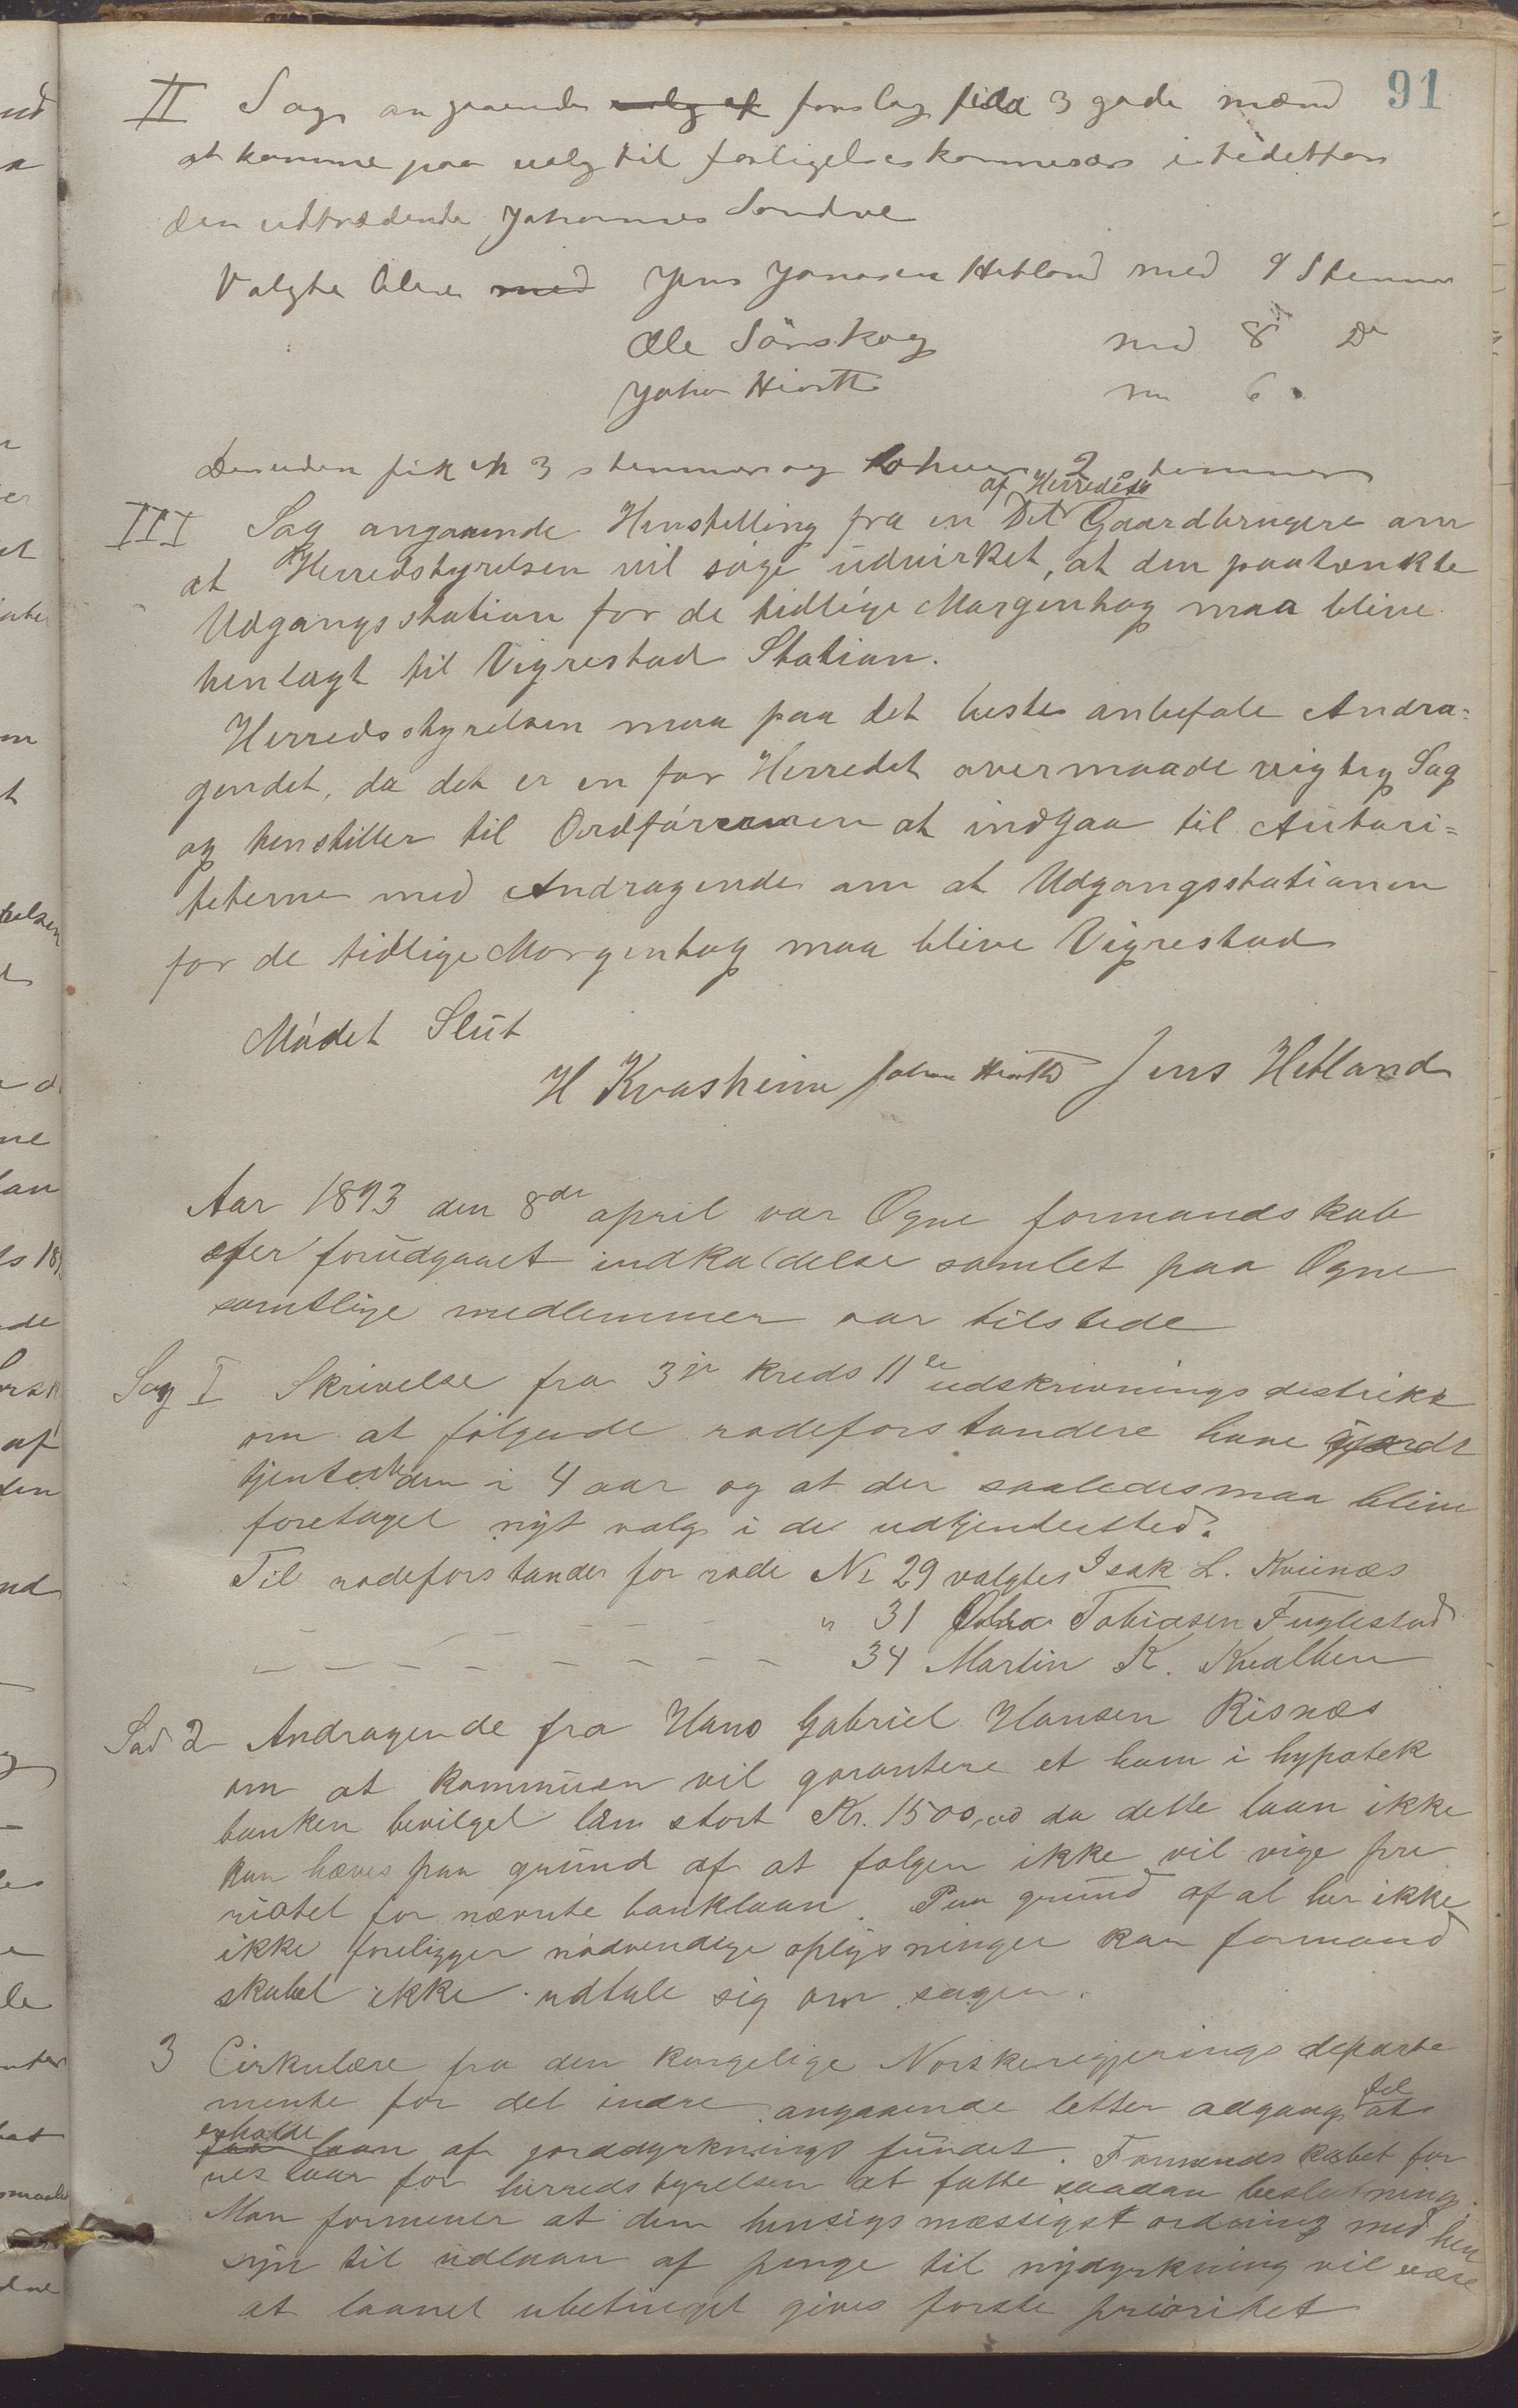 91
II Sag angaaende valg af forslag paa 3 gode mænd
at komme paa valg til forligelseskommesær i stedetfor
den udtrædende Johannes Sandve
Valgte bleve med Jens Jonasen Hetland med 9 Stemmer
Ole Sörskog med 8 Do
Johan Hiorth m 6
Desuden fik en 3 stemmer og to hver 2 stemmer
III Sag angaaende Henstilling fra en Del af Herredets Gaardbrugere om
at Herredsstyrelsen vil søge udvirket, at den paatænkte
Udgangsstation for de tidlige Morgentog maa blive
henlagt til Vigrestad Station.
Herredsstyrelsen maa paa det beste anbefale Andra-
gendet, da det er en for Herredet overmaade vigtig Sag
og henstiller til Ordføreren at indgaa til Autori-
teterne med Andragende om at Udgangsstationen
for de tidlige Morgentog maa blive Vigrestad
Mødet Slut
H Kvasheim Johan Hiorth Jens Hetland
Aar 1893 den 8de april var Ogne formandskab
efter forudgaaet indkaldelse samlet paa Ogne
samtlige medlemmer var tilstede
Sag I Skrivelse fra 3je kreds 11te udskrivningsdistrikt
om at følgende rodeforstandere have gjordt
tjeneste i 4 aar og at der saaledes maa blive
foretaget nyt valg i de udtjentes sted.
Til rodeforstander for rode No 29 valgtes Isak L. Kvinæs
" 31 Tobiasen Fuglestad
34 Martin K. Kvalben
Sag 2 Andragende fra Hans Gabriel Hansen Risnæs
om at kommunen vil garantere et ham i hypotek
banken bevilget laan stort Kr. 1500,00 da dette laan ikke
kan hæves paa grund af at følgen ikke vil vige pri
oritet for nævnte banklaan. Paa grund af at her ikke
ikke foreligger nødvendige oplysninger kan formand
skabet ikke udtale sig om sagen.
3 Cirkulære fra den kongelige Norske regjerings departe
mente for det indre angaaende letter adgang til at
erholde faa laan af jorddyrknings fundet. Formandskabet for
herredstyrelsen at fatte saadan beslutning.
Man formener at den hensigsmæssigst ordning med hen
syn til udlaan af penge til nydyrkning vil være
at laanet ubetinget gives første prioritet